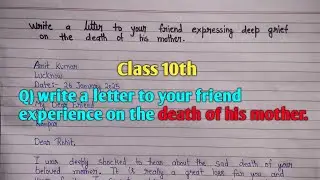 write a letter to your friend expressing deep grief
on the death of his mother.
Amit Kumar
Lucknow
Date:- 26 January 2025
Class 10th
Q) write a letter to your friend
experience on the death of his mother.
Dear Rohit,
I was deeply shocked to hear about the sad death of your
beloved mother. It is really a great loss for you and